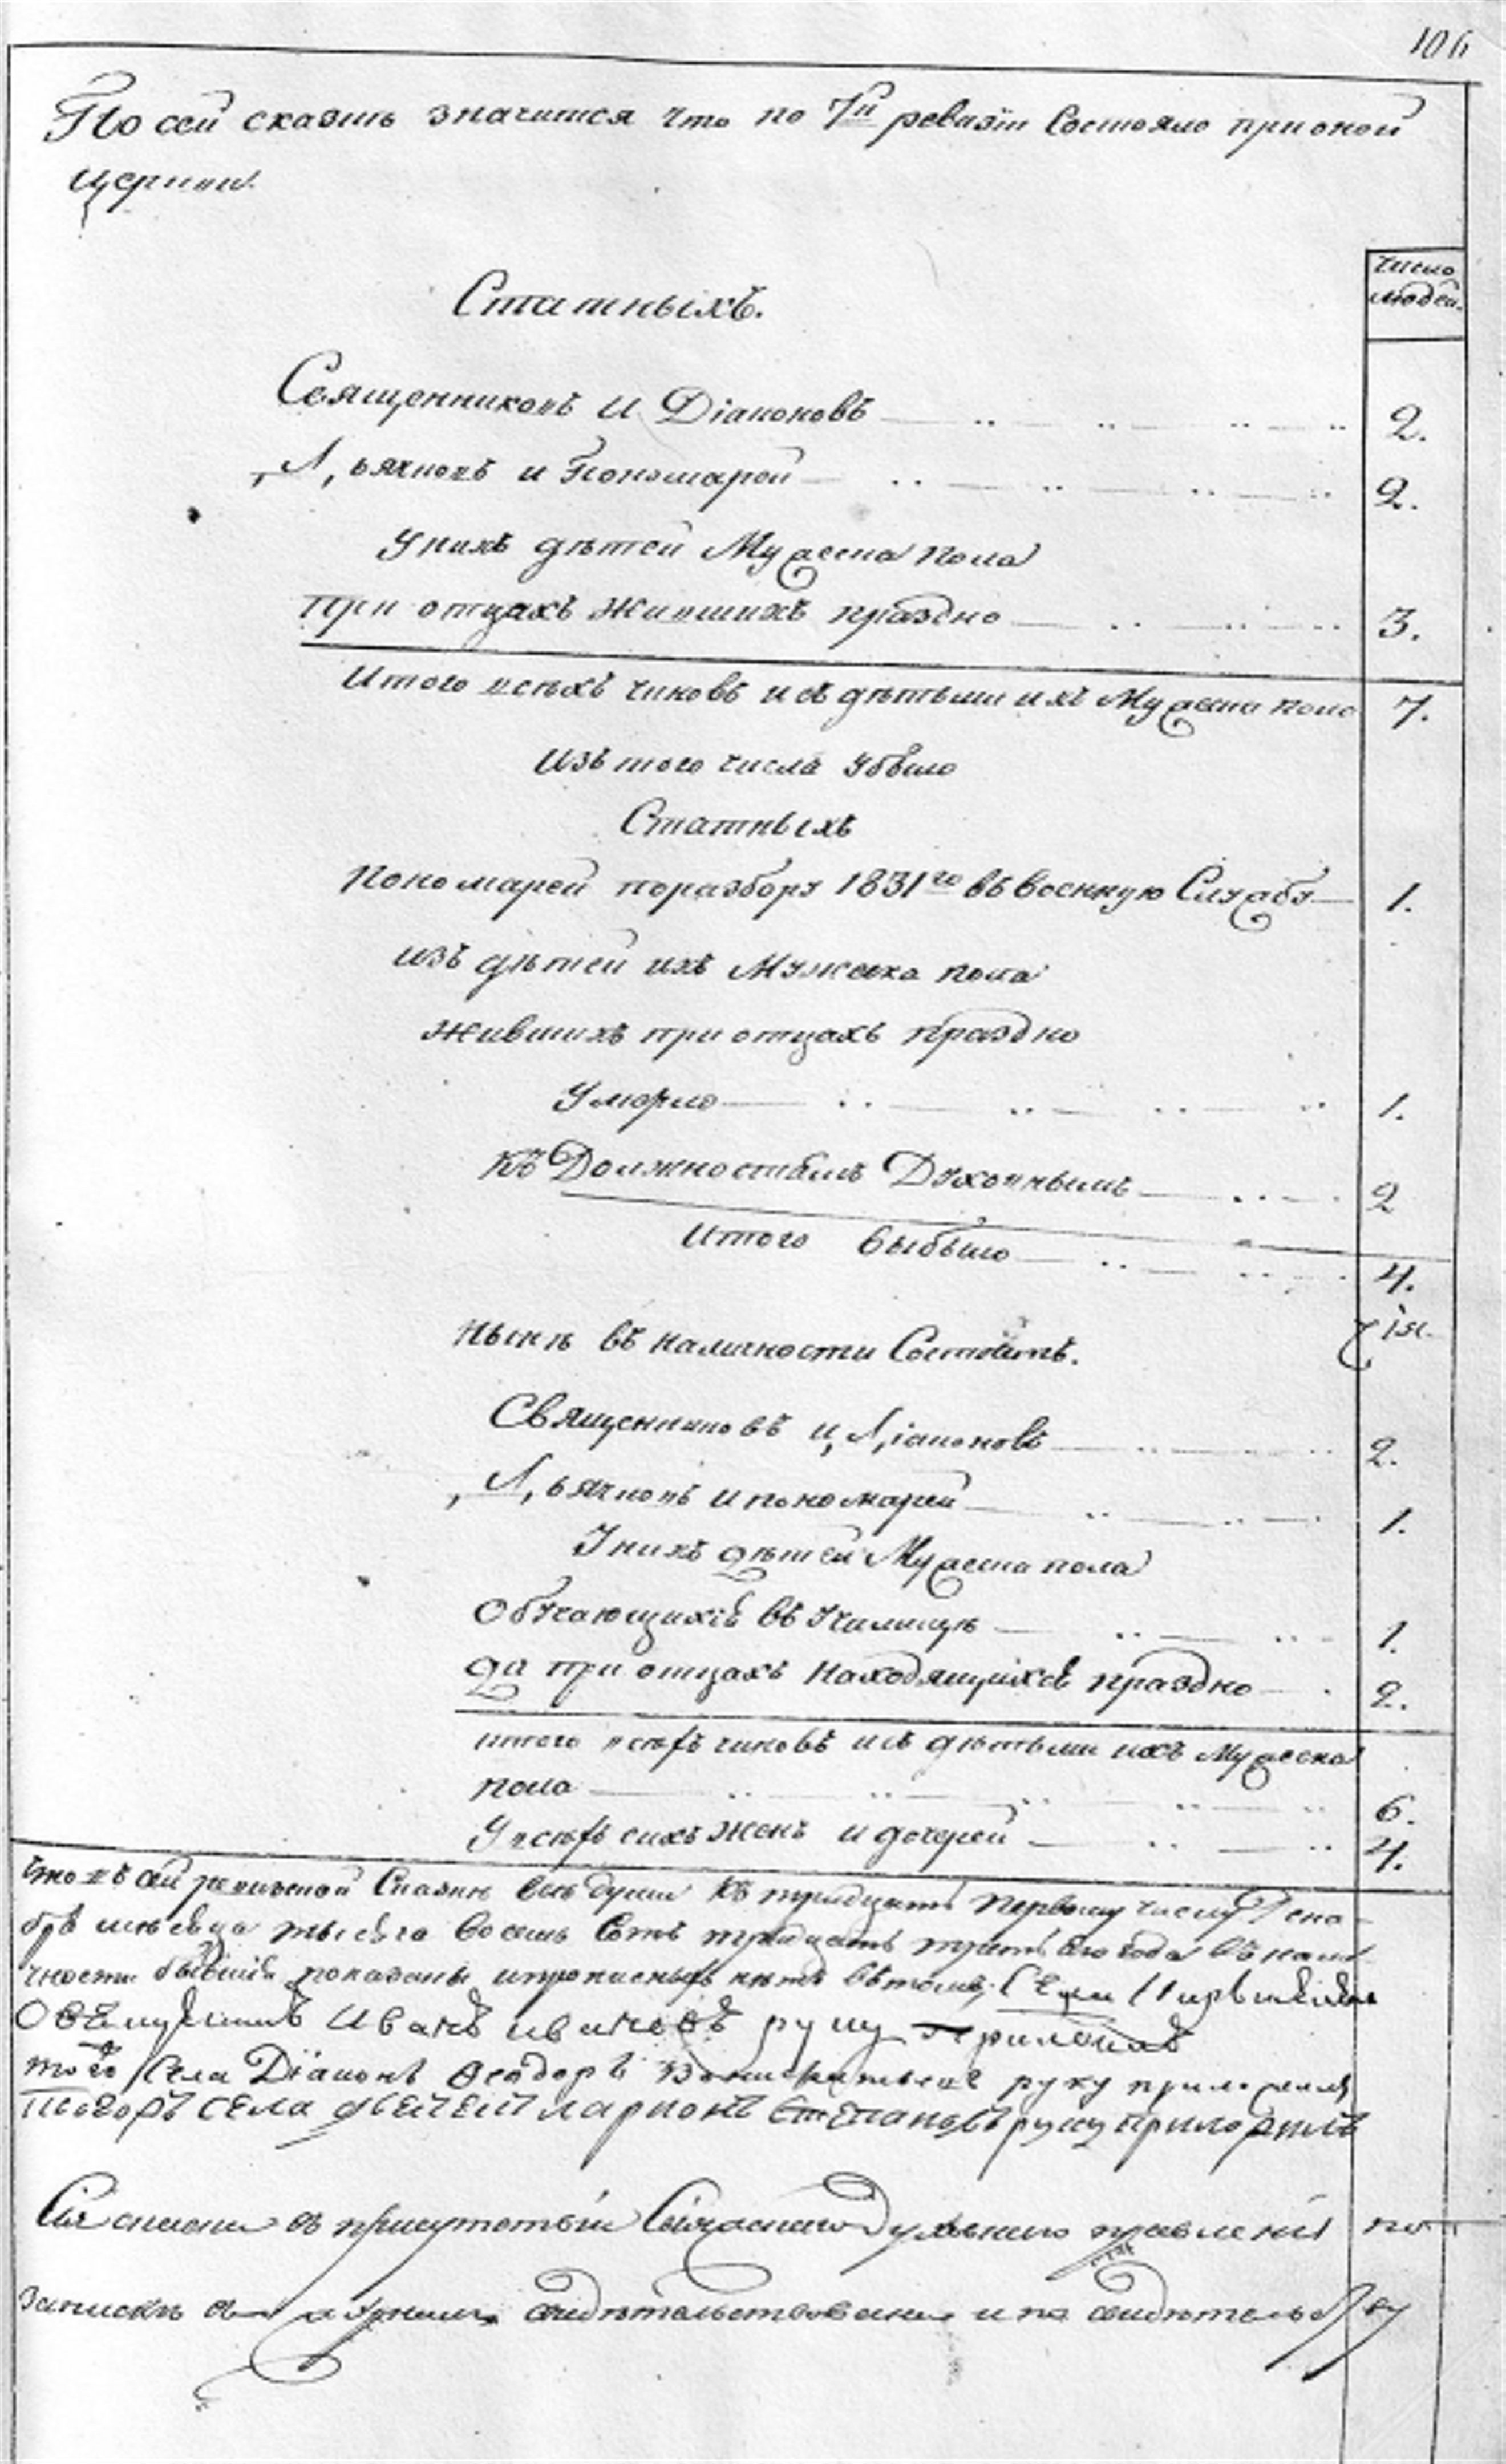 106
По сей сказкѣ значится что по 7й ревизіи Состояло при оной
церкви.
число
людей.
Статныхъ.
Священниковъ и Діаконовъ 2.
Дьячковъ и Пономарей 2.
У нихъ дѣтей Мужеска пола
при отцахъ жившихъ праздно 3.
Итого всѣхъ чиновъ и съ дѣтьми ихъ Мужеска пола 7.
Изъ того числа убыло
Статныхъ
Пономарей по разбору 1831го въ военную Службу 1.
изъ дѣтей ихъ Мужеска пола
жившихъ при отцахъ праздно
Умерло 1.
Къ Должностямъ Духовнымъ 2
Итого выбыло 4.
Нынѣ въ наличности Состоитъ.
Священниковъ и Діаконовъ 2.
Дьячковъ и пономарей 1.
У нихъ дѣтей Мужеска пола
Обучающихся въ Училищѣ 1.
да при отцахъ находящихся праздно 2.
итого всѣхъ чиновъ и съ дѣтьми ихъ Мужеска
пола 6.
У всѣхъ сихъ женъ и дочерей 4.
Что въ сей ревижской Сказкѣ всѣ души къ тридцать первому числу Дека-
бря мѣсяца тысяча восемь Сотъ тридцать третьяго года въ нали-
чности бывшія показаны и прописныхъ нѣтъ въ томъ
Священникъ Иванъ Ивановъ руку приложилъ
того Села Діаконъ Ѳедоръ руку приложилъ
тогожъ села Ларионъ Степановъ руку приложилъ
Сія сказка въ присутствіи Духовнаго правленія по
запискѣ свидѣтельствована и по свидѣтельству